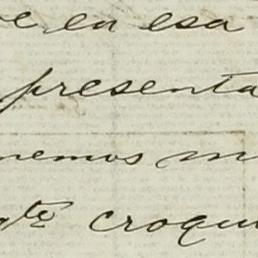 en esa
presenta
nemos m
gte croqui